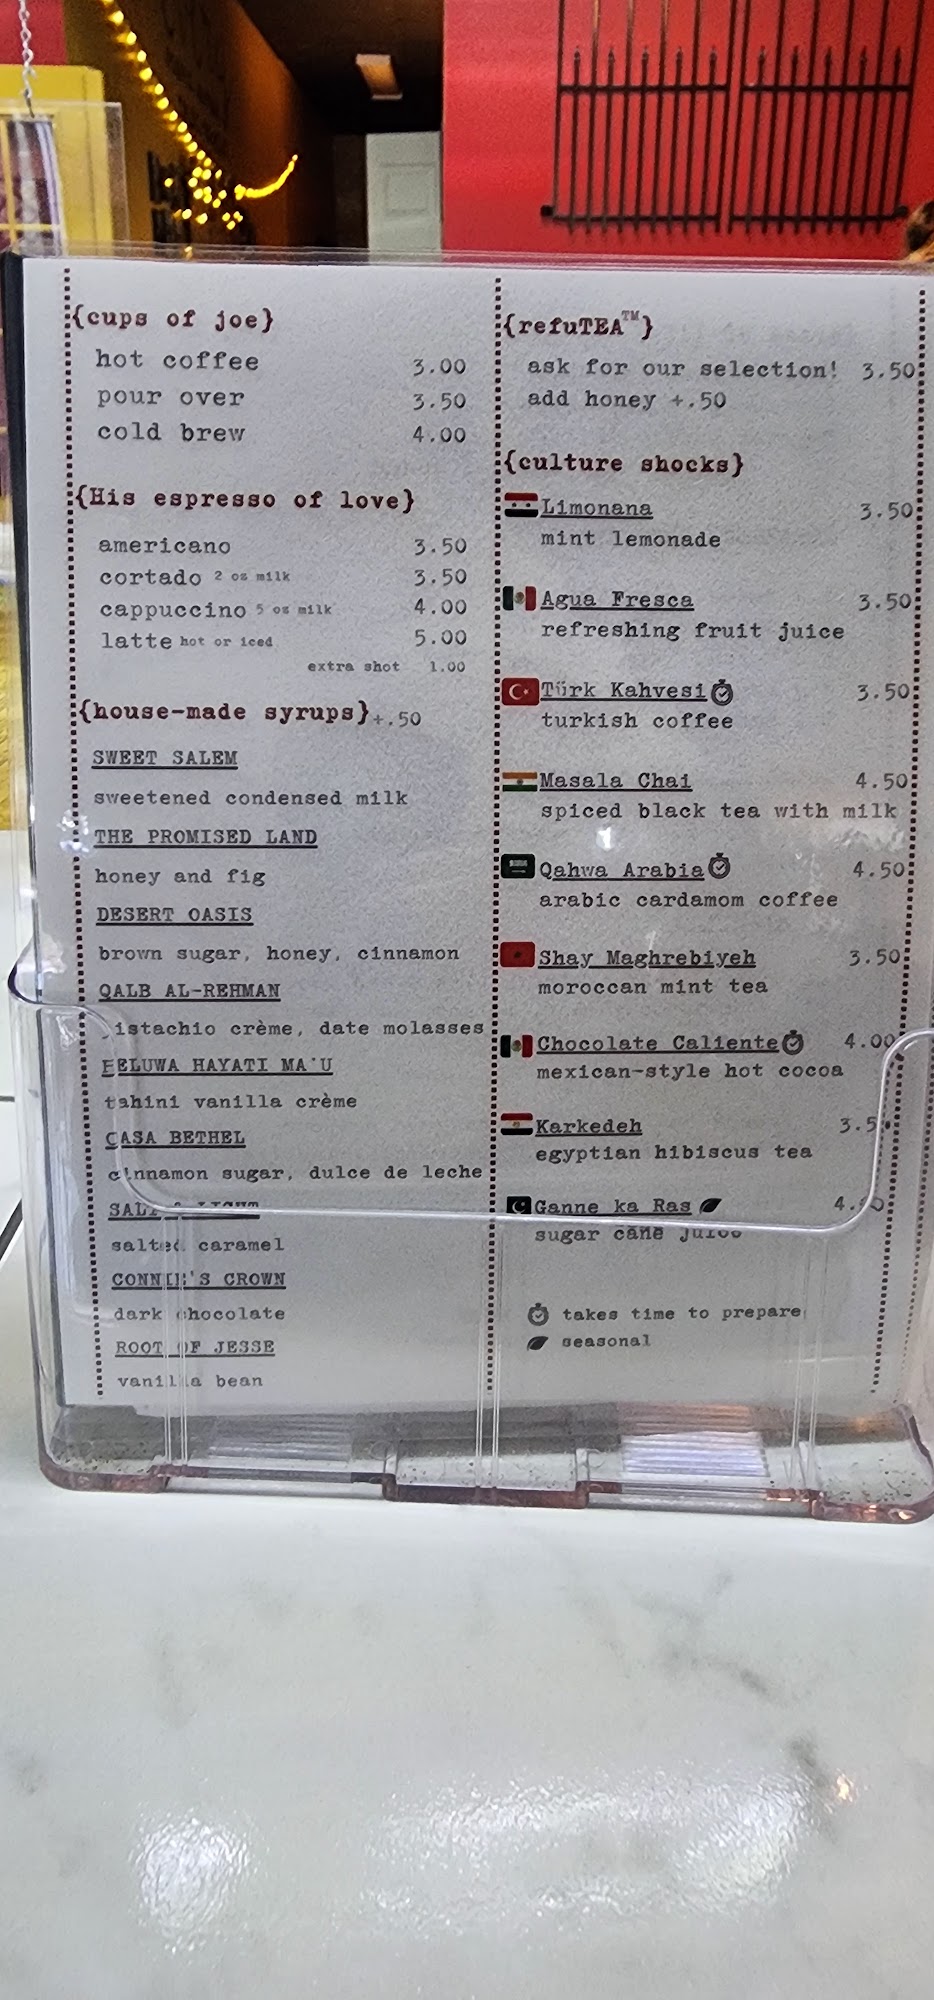 {cups of joe}
hot coffee 3.00
pour over 3.50
cold brew 4.00
{His espresso of love}
americano 3.50
cortado 2 oz milk 3.50
cappuccino 5 oz milk 4.00
latte hot or iced 5.00
extra shot 1.00
{house-made syrups}+.50
SWEET SALEM
sweetened condensed milk
THE PROMISED LAND
honey and fig
DESERT OASIS
brown sugar, honey, cinnamon
QALB AL-REHMAN
pistachio crème, date molasses
HAYATI MA'U
tahini vanilla crème
CASA BETHEL
cinnamon sugar, dulce de leche
SALT & LIGHT
salted caramel
CONNIE'S CROWN
dark chocolate
ROOT OF JESSE
vanilla bean
{refuTEA™}
ask for our selection! 3.50
add honey +.50
{culture shocks}
Limonana 3.50
mint lemonade
Agua Fresca 3.50
refreshing fruit juice
Türk Kahvesi 3.50
turkish coffee
Masala Chai 4.50
spiced black tea with milk
Qahwa Arabia 4.50
arabic cardamom coffee
Shay Maghrebiyeh 3.50
moroccan mint tea
Chocolate Caliente 4.00
mexican-style hot cocoa
Karkedeh
egyptian hibiscus tea
Ganne ka Ras
sugar cane juice
takes time to prepare
seasonal